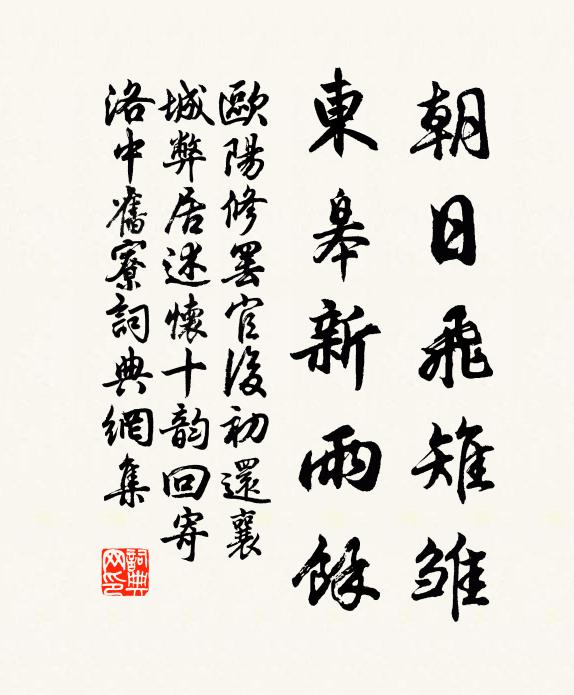 朝日飛雉雏
東皋新雨餘
歐陽修罢官後初還襄
城弊居述懷十韵回寄
洛中舊寮詞典網集
詞典网印